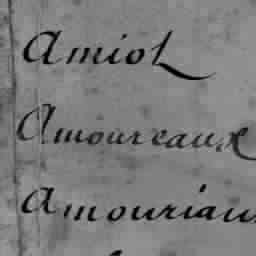 Amiot
Amoureaux
Amouriau